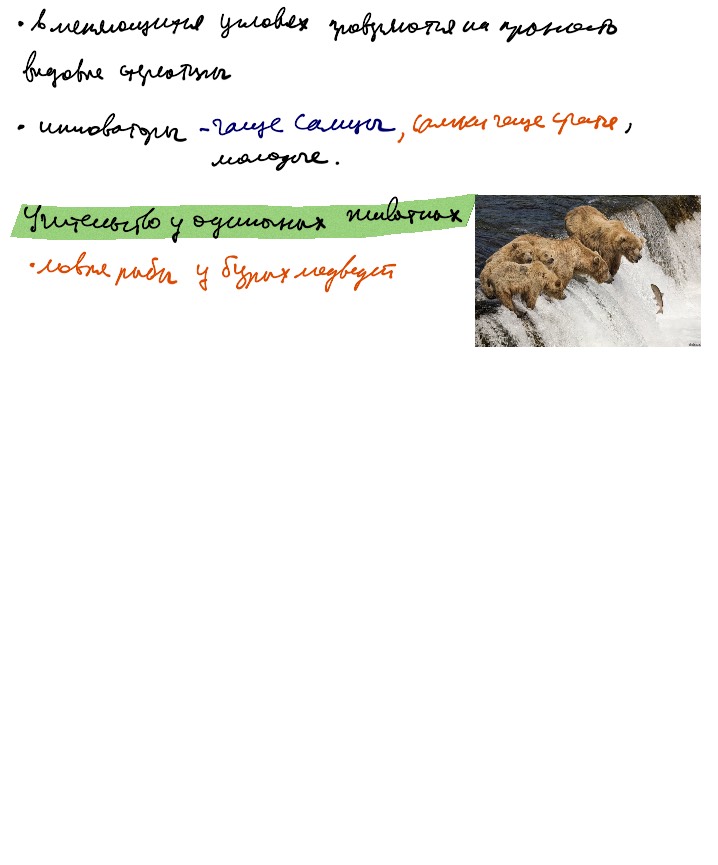 • в меняющихся условях проверяются на прочность
видовые стереотипы
• инноваторы – чаще самцы, самки чаще среди,
молодые.
Учительство у одиночных животных
• ловля рыбы у бурых медведей